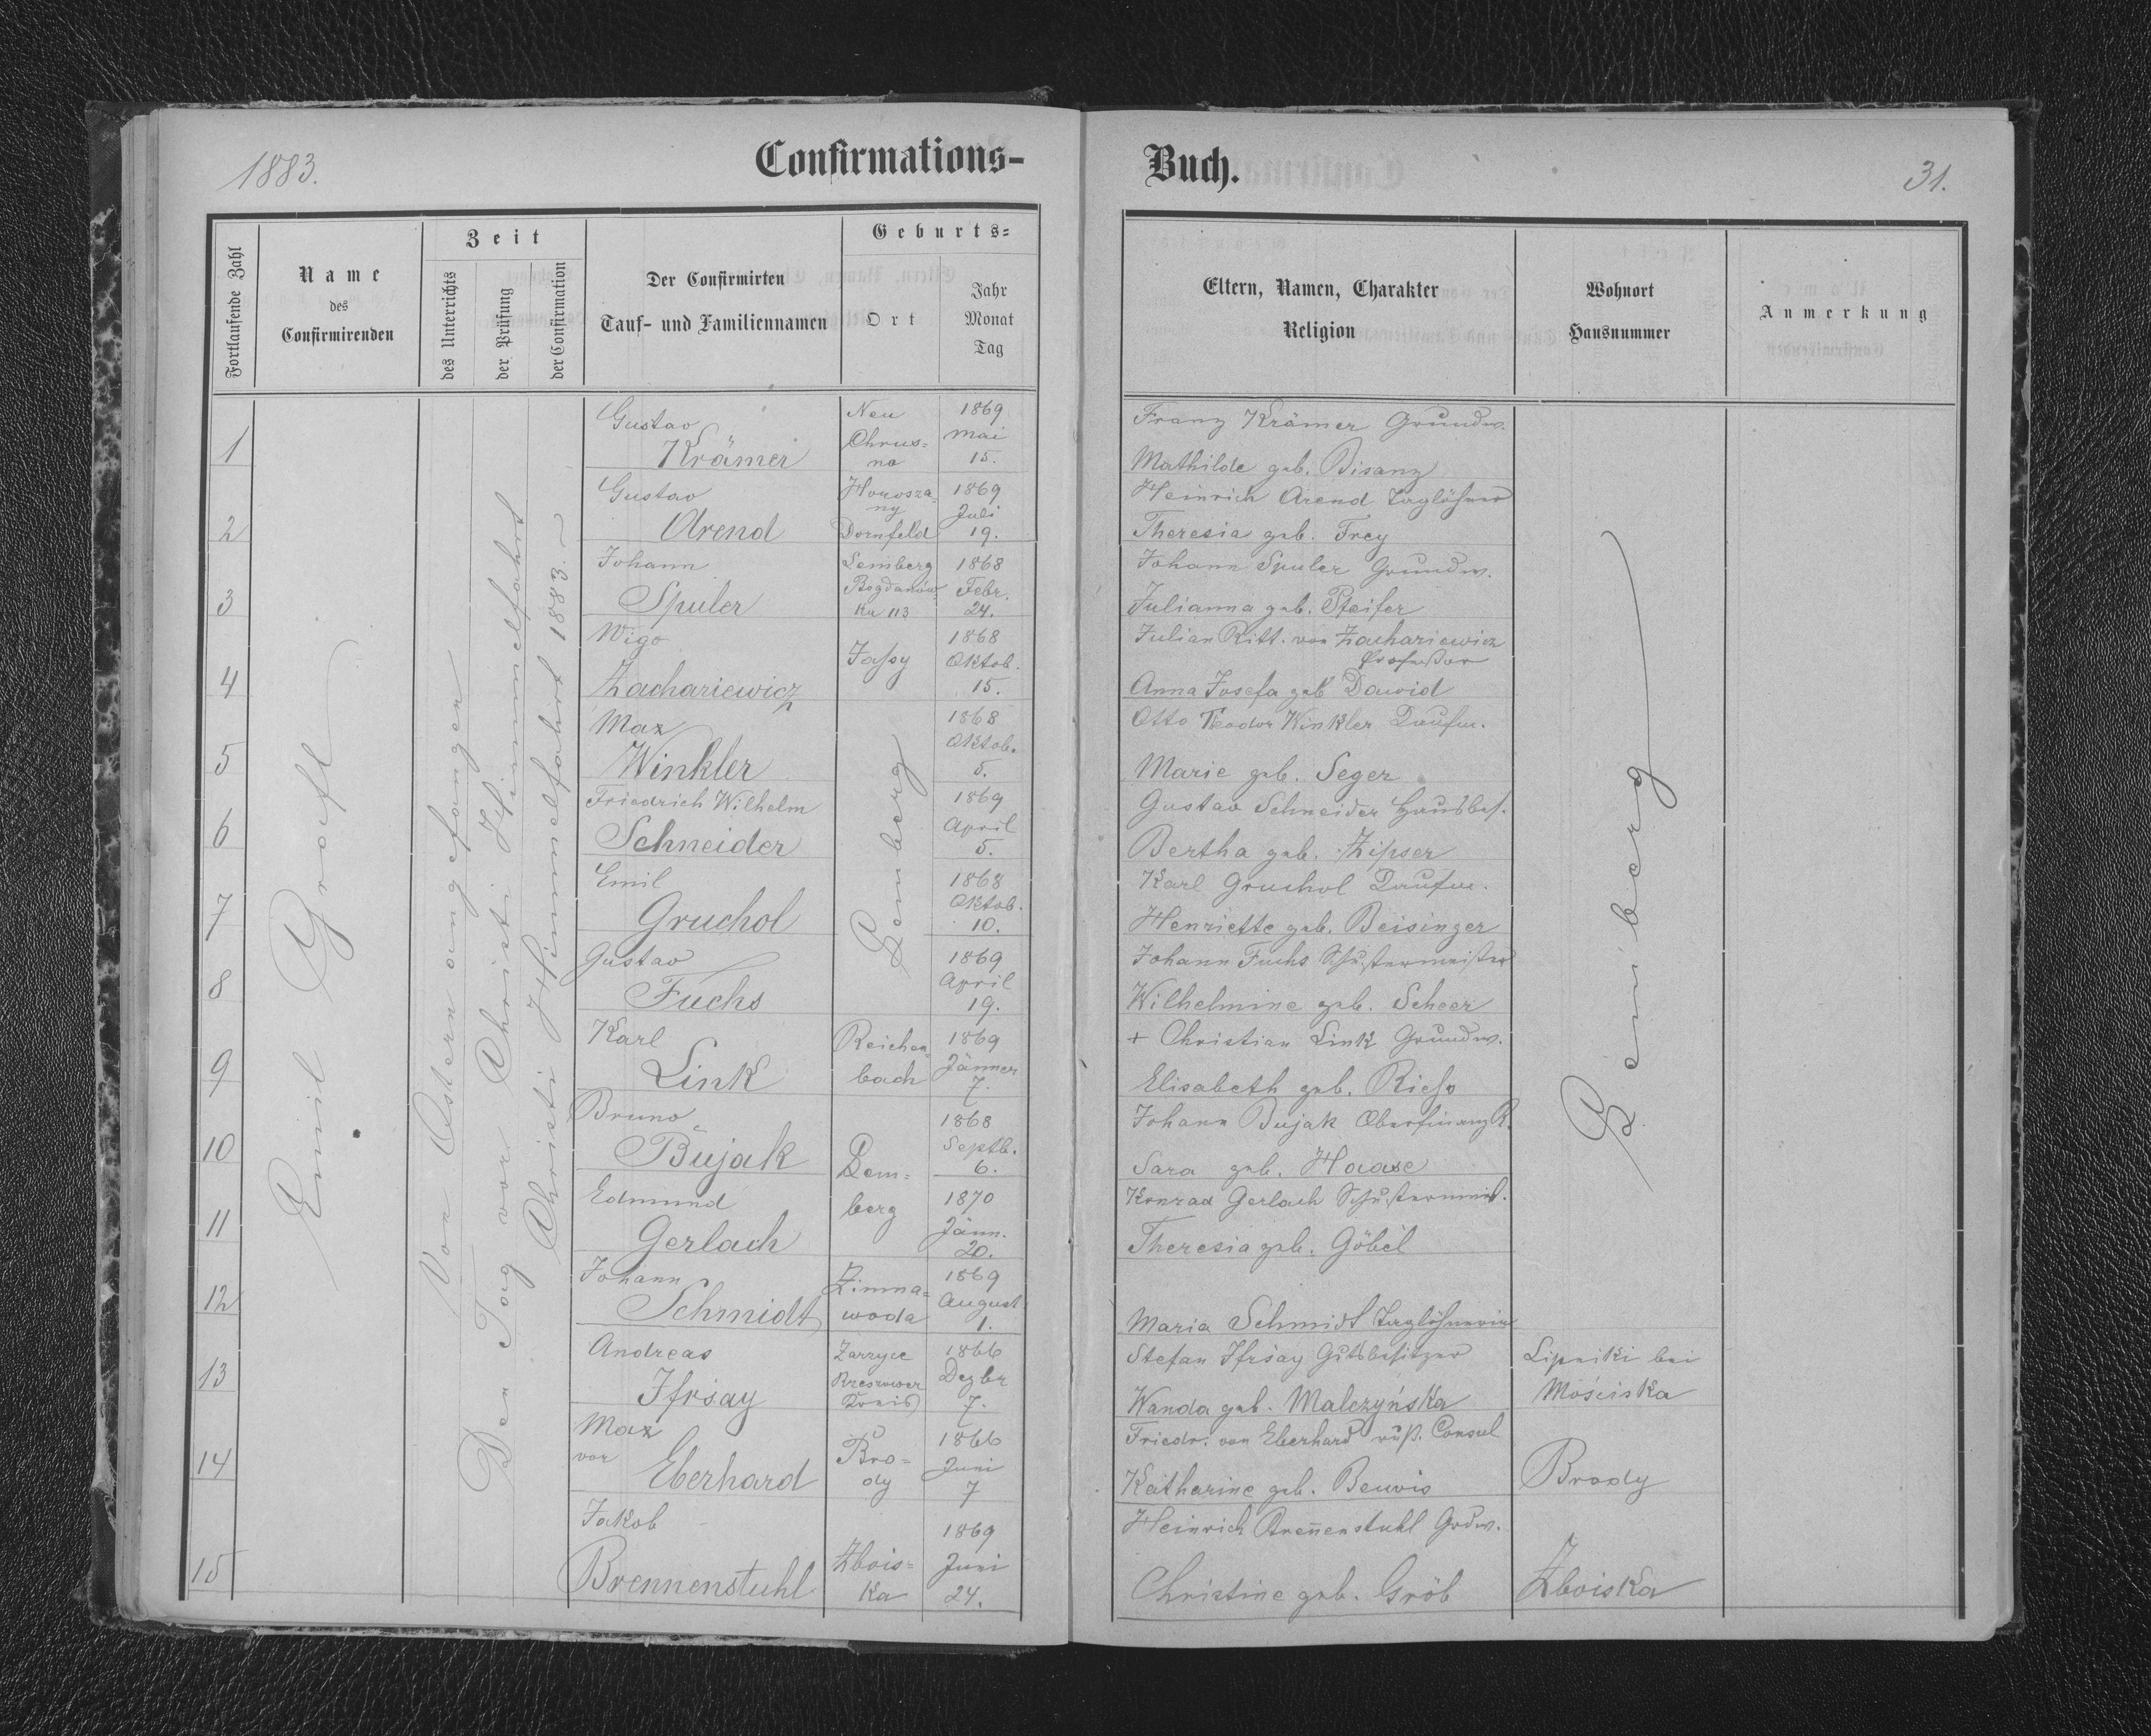 1883.
Confirmations-
Fortlaufende Zahl
Name
des
Confirmirenden
Zeit
des Unterrichts
der Prüfung
der Confirmation
Der Confirmirten
Tauf- und Familiennamen
Geburts-
Ort
Jahr
Monat
Tag
Emil Graefl
Von Ostern angefangen
Den Tag vor Christi Himmelfahrt
Christi Himmelfahrt 1883.
1
Gustav
Krämer
Neu
Chrus-
no
1869
Mai
15.
2
Gustav
Arend
Horosza-
ny
Dornfeld
1869
Juli
19.
3
Johann
Spuler
Lemberg
Bogdanów-
ka 113
1868
Febr.
24.
4
Wigo
Zachariewicz
Jassy
1868
Oktob.
15.
5
Max
Winkler
Lemberg
1868
Oktob.
5.
6
Friedrich Wilhelm
Schneider
1869
April
5.
7
Emil
Gruchol
1868
Oktob.
10.
8
Gustav
Fuchs
1869
April
19.
9
Karl
Link
Reichen-
bach
1869
Jänner
7.
10
Bruno
Bujak
Lem-
berg
1868
Septb.
6.
11
Edmund
Gerlach
1870
Jänn.
20.
12
Johann
Schmidt
Zimna-
woda
1869
August
1.
13
Andreas
Ifrsay
Zarzyce
Rzeszower
Kreis
1866
Dezbr
7.
14
Max
von
Eberhard
Bro-
dy
1866
Juni
7
15
Jakob
Brennenstuhl
Zbois-
ka
1869
Juni
24.
Buch.
31.
Eltern, Namen, Charakter
Religion
Wohnort
Hausnummer
Anmerkung
Franz Krämer Grundw.
Mathilde geb. Bisanz
Heinrich Arend Taglöhner
Theresia geb. Frey
Johann Spuler Grundw.
Julianna geb. Pfeifer
Julian Ritt. von Zachariewicz
Professor
Anna Josefa geb Dawid
Otto Teodor Winkler Kaufm.
Marie geb. Seger
Gustav Schneider Hausbes.
Bertha geb. Zipser
Karl Gruchol Kaufm.
Henriette geb. Beisinger
Johann Fuchs Schustermeister
Wilhelmine geb. Scheer
+ Christian Link Grundw.
Elisabeth geb. Riess
Johann Bujak OberfinanzR.
Sara geb. Haase
Konrad Gerlach Schustermeist.
Theresia geb. Göbel
Maria Schmidt Taglöhnerin
Lemberg
Stefan Ifrsay Gutsbesitzer
Wanda geb. Malczyńska
Lipniki bei
Mościska
Friedr. von Eberhard russ. Consul
Katharine geb.
Brody
Heinrich Breñenstuhl Grdw.
Christine geb. Gröb
Zboiska